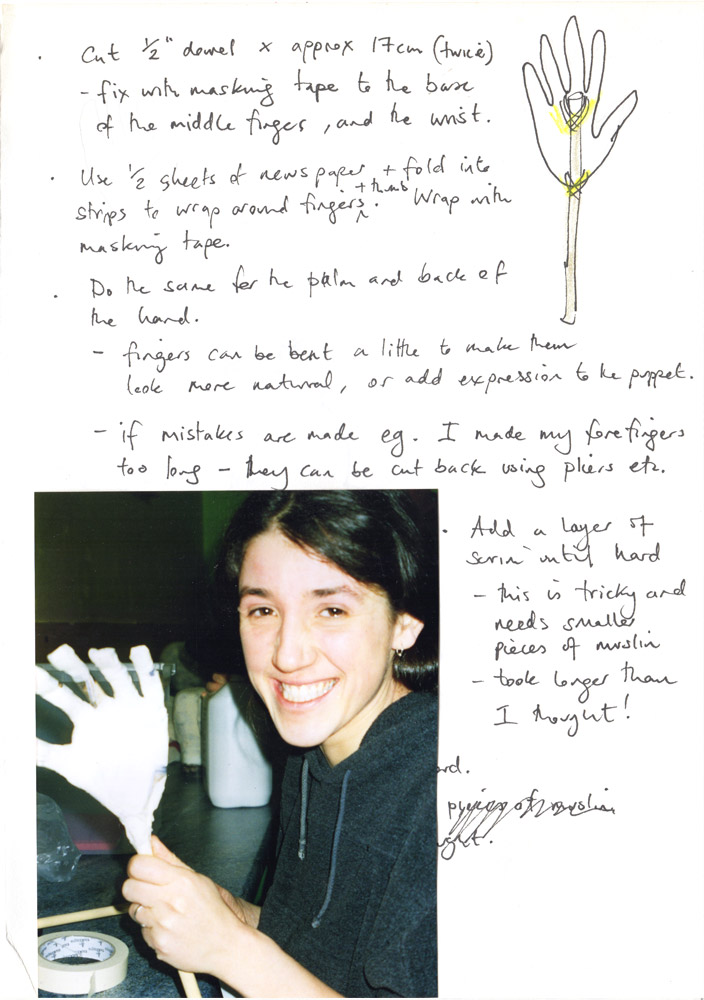 · Cut ½" dowel x approx 17cm (twice)
- fix with masking tape to the base
of the middle finger, and the wrist.
· Use ½ sheets of newspaper + fold into
strips to wrap around fingers + thumb. Wrap with
masking tape.
· Do the same for the palm and back of
the hand.
- fingers can be bent a little to make them
look more natural, or add expression to the puppet.
- if mistakes are made eg. I made my forefingers
too long - they can be cut back using pliers etc.
· Add a layer of
until hard
- this is tricky and
needs smaller
pieces of muslin
- took longer than
I thought!
ard.
pieces of muslin
ught.